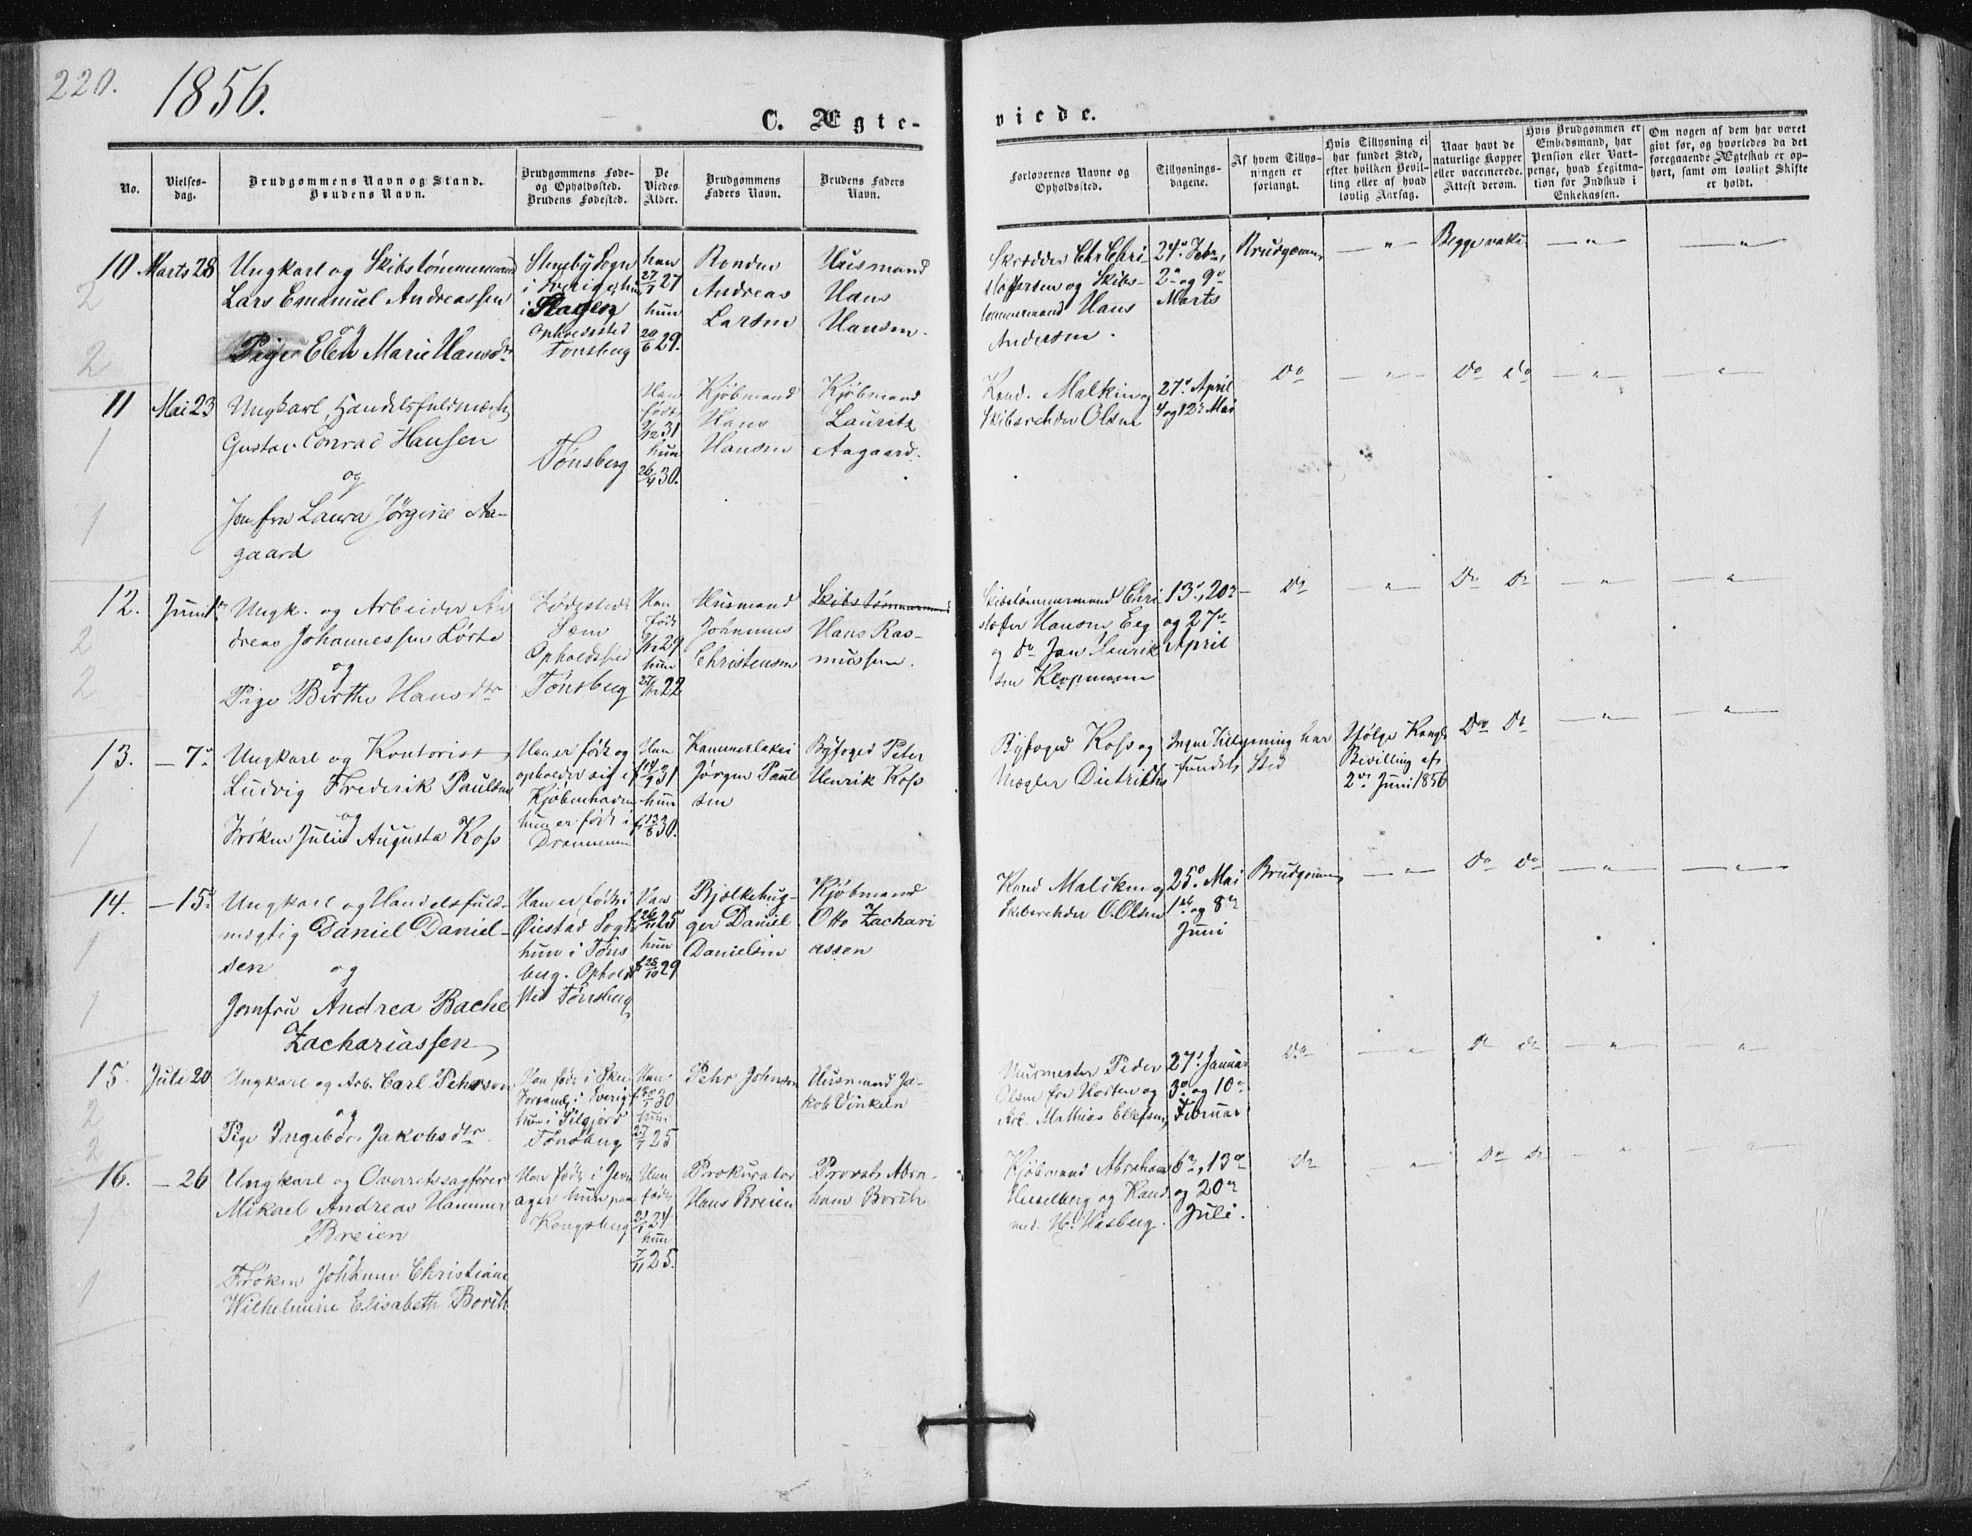 220.
1856.
C. Ægte-
viede.
No.
Vielses-
dag.
Brudgommens Navn og Stand.
Brudens Navn.
Brudgommens Føde-
og Opholdssted.
Brudens Fødested.
De
Viedes
Alder.
Brudgommens
Faders Navn.
Brudens Faders
Navn.
Forlovernes Navne og
Opholdssted.
Tillysnings-
dagene.
Af hvem Tillys-
ningen er
forlangt.
Hvis Tillysning ei
har fundet Sted,
efter hvilken Bevil-
ling eller af hvad
lovlig Aarsag.
Naar havt de
naturlige Kopper
eller vaccinerede.
Attest derom.
Hvis Brudgommen er
Embedsmand, har
Pension eller Vart-
penge, hvad Legitma-
tion for Indskud i
Enkekassen.
Om nogen af dem har været
givt før, og hvorledes da det
foregaaende Ægteskab er op-
hørt, samt om lovligt Skifte
er holdt.
10
Marts 28
Ungkarl og Skibstømmermand
Lars Emanuel Andreassen
og
Pige Elen Marie Hansdtr
Steneby Sogn
i Sverige, hun
i Slagen
Opholdssted
Tønsberg
han
27/7 27
hun
20/6 29.
Bonden
Andreas
Larsen
Husmand
Hans
Hansen.
Skrædder Chr Chri
stoffersen og Skibs-
tømmermand Hans
Andersen.
24de Febr,
2den og 9de
Marts
Brudgommen
— " —
Begge vakc.
— " —
"
2
2
11
Mai 23
Ungkarl, Handelsfuldmægtig
Gustav Conrad Hansen
og
Jomfru Laura Jørgine Aa-
gaard
Tønsberg
Han
født
2/12 31
hun
26/4 30.
Kjøbmand
Hans
Hansen
Kjøbmand
Lauritz
Aagaard.
Kand. Malkin og
Skibsreder Olsen
27de April
4 og 12te Mai
Do
— " —
Do Do
— " —
"
1
1
12.
Juni 1ste
Ungk. og Arbeider An
dreas Johannessen Lørte
og
Pige Birthe Hansdtr
Fødested
Sem
Opholdssted
Tønsberg
Han
født
29
hun
22
Husmand
Johannes
Christensen
Skibstømmermand
Hans Ras-
mussen.
Skibstømmermand Chri
stoffer Hansen Eeg
og Do Jan Henrik
sen Klopmann
13de, 20de
og 27de
April
Do
— " —
Do Do
— " —
— " —
2
2
13.
— 7de
Ungkarl og Kontorist
Ludvig Frederik Paulsen
og
Frøken Julie Augusta Koss
Han er født og
opholder sig i
Kjøbenhavn
hun er født i
Drammen
Han
14/9 31
hun
13/6 30.
Kammerlakei
Jørgen Paul
sen
Byfoged Peter
Henrik Koss
Byfoged Koss og
Mægler Dietrichs
Ingen Tillysning har
fundet Sted
Ifølge Kongl.
Bevilling af
2den Juni 1856
Do Do
— " —
— " —
1
1
14.
— 15de
Ungkarl og Handelsfuld-
mægtig Daniel Daniel-
sen og
Jomfru Andrea Bache
Zachariassen
Han er født i
Øiestad Sogn
hun i Tøns
berg. Ophold
sted Tønsberg
Han
25
hun
28/10 29
Bjelkehug-
ger Daniel
Danielsen
Kjøbmand
Otto Zachari
assen
Kand Malikin og
Skibsreder O. Olsen
25de Mai
1ste og 8de
Juni
Brudgommen
— " —
Do Do
— " —
— " —
1
1
15.
Juli 20
Ungkarl og Arb. Carl Pehrson
og
Pige Ingebor Jakobsdtr
Han født i
i Sverig
hun i Siljord
Tønsberg
Han
30
hun
27/7 25
Pehr Johnson
Husmand Ja-
kob
Murmester Peder
Olsen fra Horten og
Arb. Mathias Elefsen,
27de Januar
3de og 10de
Februar
Do
— " —
Do Do
— " —
"
2
2
16.
— 26
Ungkarl og Overretssagfører
Mikael Andreas Hammer
Breien
og
Frøken Johanne Christiane
Wilhelmine Elisabeth Borch
Han født i Jevn
ager hun paa
Kongsberg
Han
født
24
hun
7/11 25.
Prokurator
Hans Breien
Provst Abra-
ham Borch
Kjøbmand Abraham
Hesselberg og Kand.
med. H. Hasberg.
6te, 13de
og 20de
Juli.
Do
"
Do Do
— " —
"
1
1